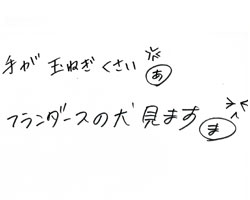 手が玉ねぎくさい あ
フランダースの犬見ます ま